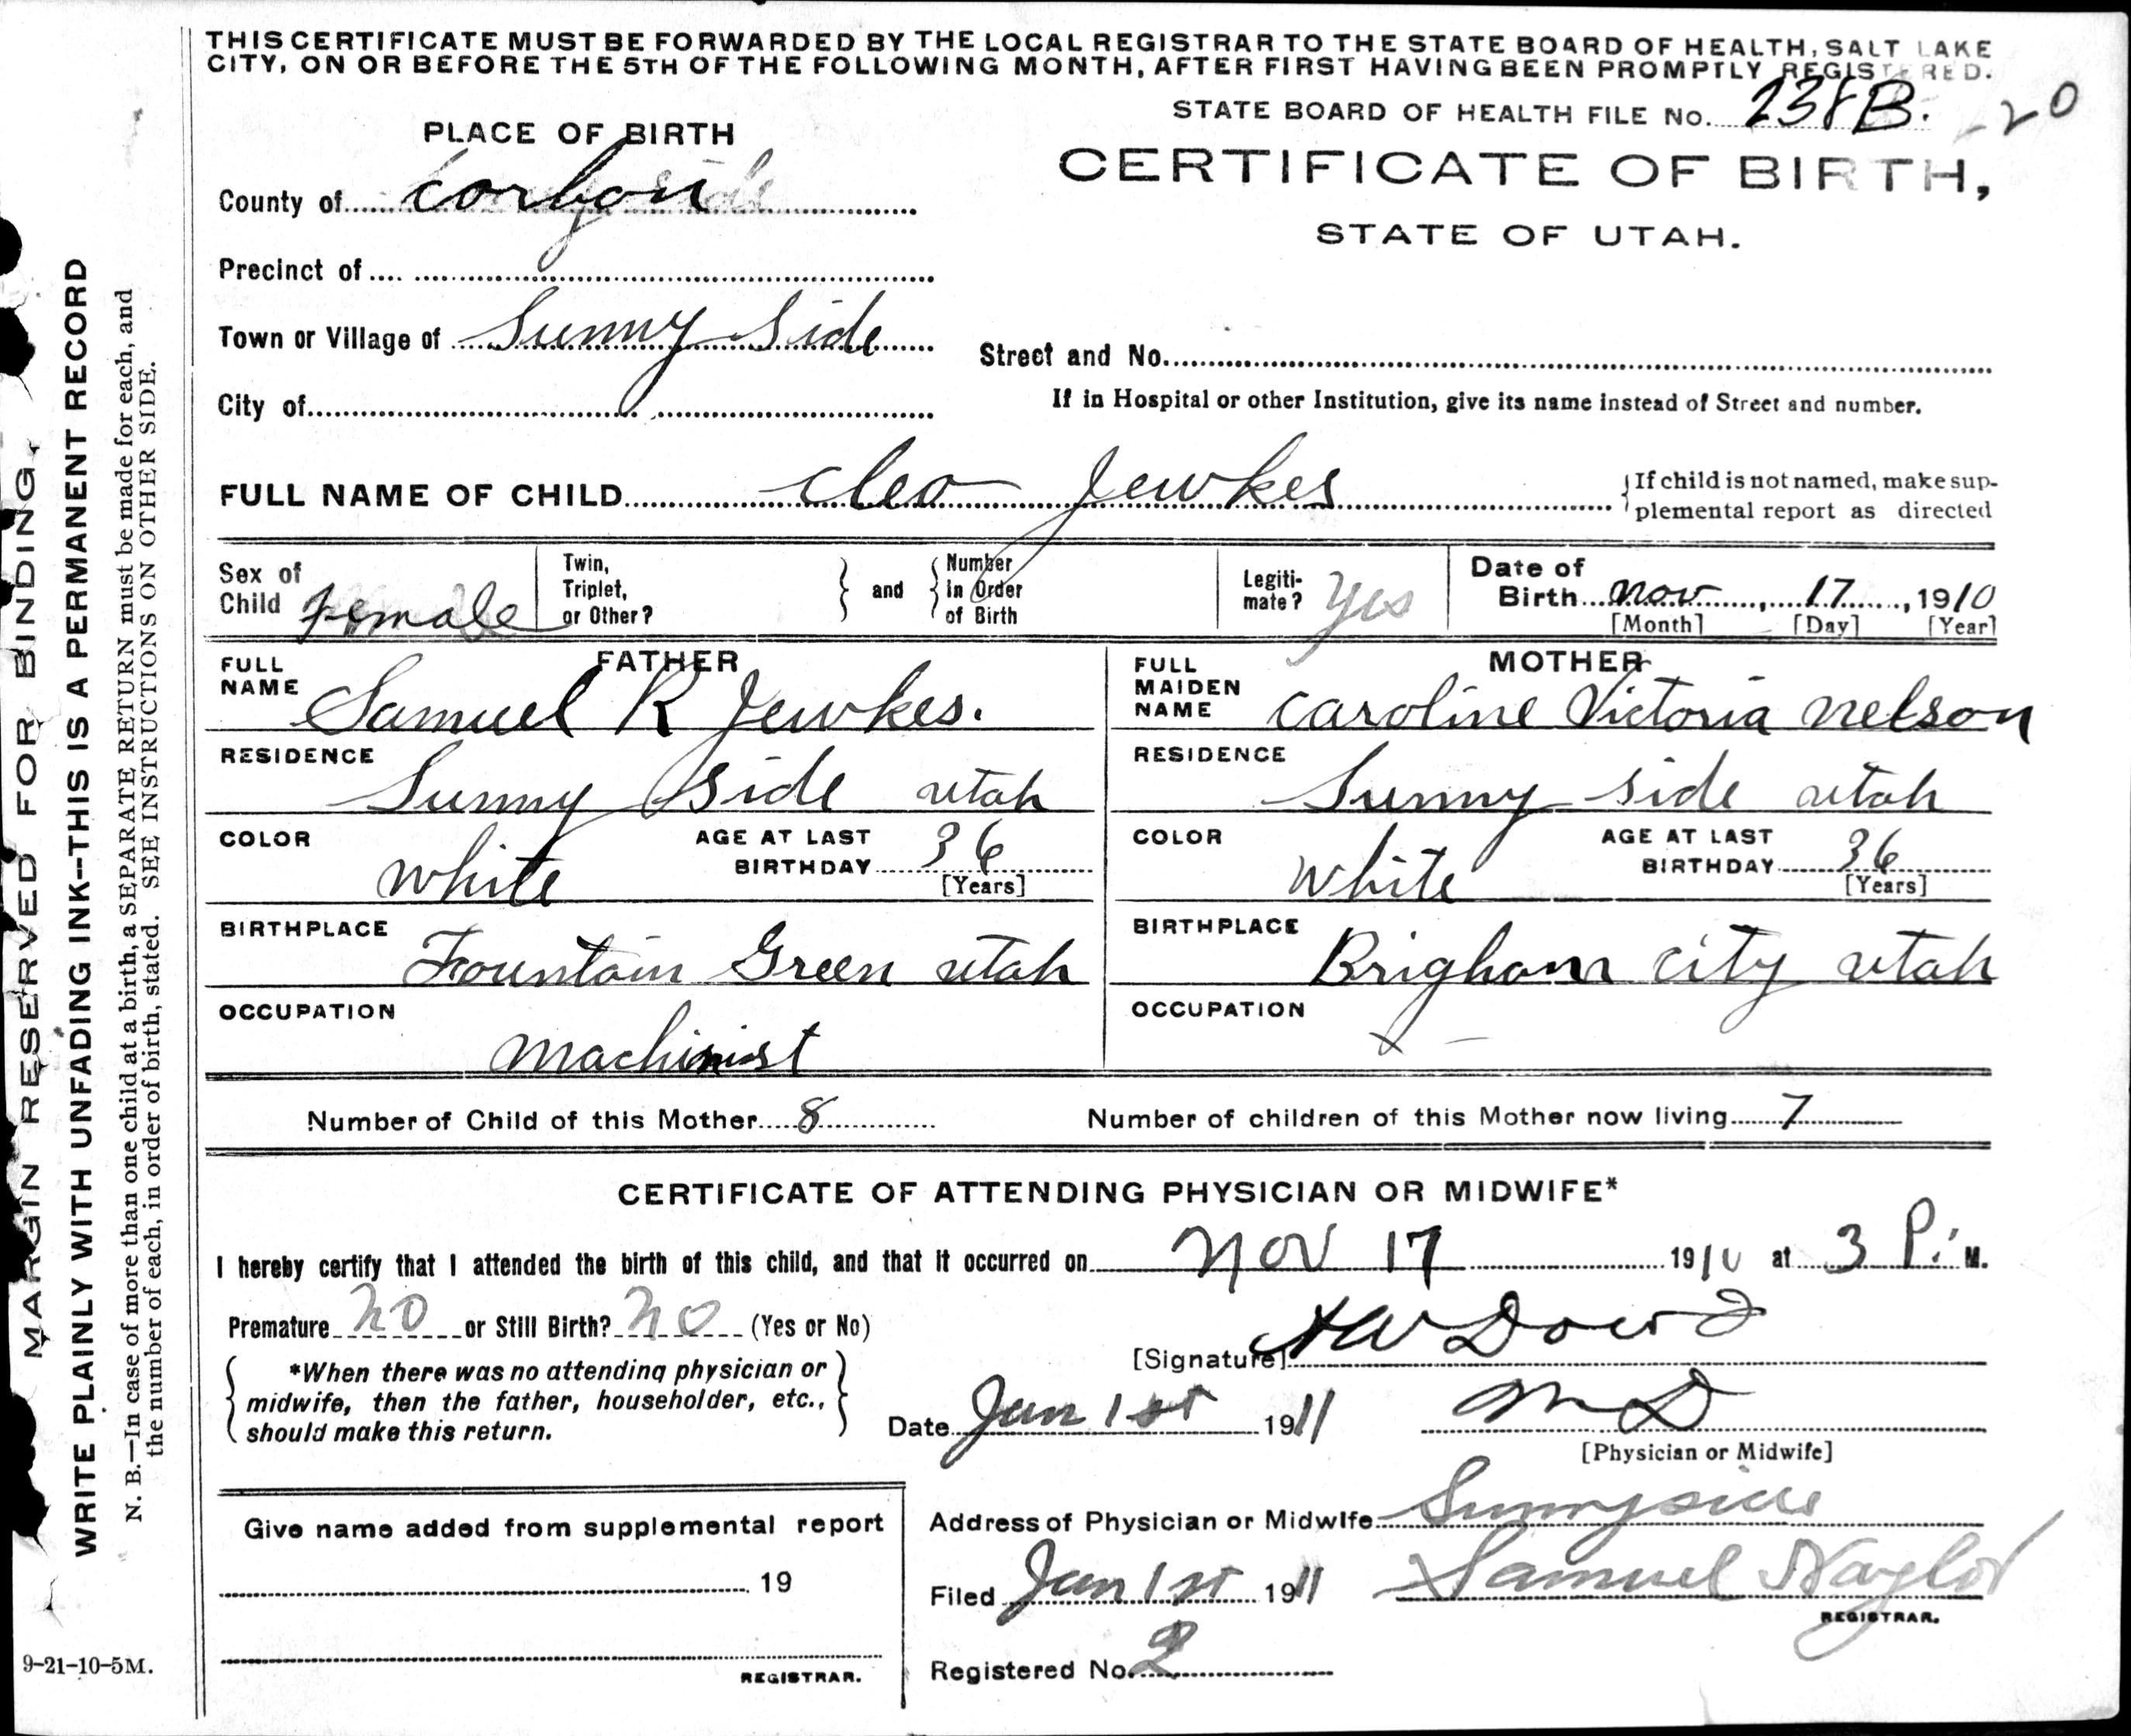 THIS CERTIFICATE MUST BE FORWARDED BY THE LOCAL REGISTRAR TO THE STATE BOARD OF HEALTH, SALT LAKE
CITY, ON OR BEFORE THE 5TH OF THE FOLLOWING MONTH, AFTER FIRST HAVING BEEN PROMPTLY REGISTERED.
STATE BOARD OF HEALTH FILE No. 238B. -20
CERTIFICATE OF BIRTH,
STATE OF UTAH.
PLACE OF BIRTH
County of carbon
Precinct of
Town or Village of Sunny Side
Street and No.
City of
If in Hospital or other Institution, give its name instead of Street and number.
FULL NAME OF CHILD cleo Jewkes
If child is not named, make sup-
plemental report as directed
Sex of
Child female
Twin,
Triplet,
or Other?
and
Number
in Order
of Birth
Legiti-
mate? yes
Date of
Birth nov, 17, 1910
[Month] [Day] [Year]
FATHER
FULL
NAME Samuel R Jewkes.
MOTHER
FULL
MAIDEN
NAME caroline Victoria nelson
RESIDENCE Sunny Side utah
RESIDENCE Sunny side utah
COLOR white
AGE AT LAST
BIRTHDAY 36
[Years]
COLOR white
AGE AT LAST
BIRTHDAY 36
[Years]
BIRTHPLACE Fountain Green utah
BIRTHPLACE Brigham city utah
OCCUPATION machinist
OCCUPATION x –
Number of Child of this Mother 8
Number of children of this Mother now living 7
CERTIFICATE OF ATTENDING PHYSICIAN OR MIDWIFE*
I hereby certify that I attended the birth of this child, and that it occurred on nov 17 1910 at 3 P. M.
Premature no or Still Birth? no (Yes or No)
[Signature] Dowd
*When there was no attending physician or
midwife, then the father, householder, etc.,
should make this return.
Date Jan 1st 1911
MD
[Physician or Midwife]
Give name added from supplemental report
19
REGISTRAR.
Address of Physician or Midwife Sunnyside
Filed Jan 1st 1911 Samuel Naylor
REGISTRAR.
Registered No. 2
MARGIN RESERVED FOR BINDING.
WRITE PLAINLY WITH UNFADING INK—THIS IS A PERMANENT RECORD
N. B.—In case of more than one child at a birth, a SEPARATE RETURN must be made for each, and
the number of each, in order of birth, stated. SEE INSTRUCTIONS ON OTHER SIDE.
9-21-10-5M.